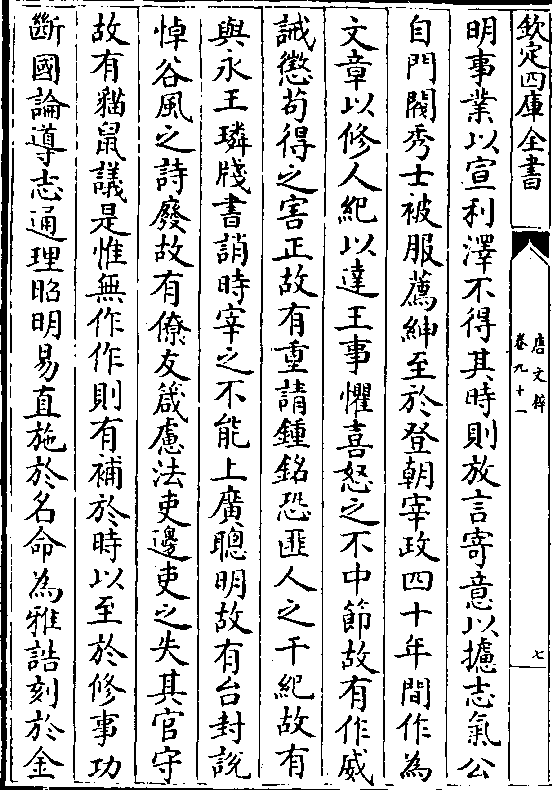 欽定四庫全書
唐文粹
卷九十一
七
明事業以宣利澤不得其時則放言寄意以攄志氣公
自門閥秀士被服薦紳至於登朝宰政四十年間作為
文章以修人紀以達王事懼喜怒之不中節故有作威
誡懲苟得之害正故有重請鍾銘恐匪人之干紀故有
與永王璘牋書誚時宰之不能上廣聰明故有台封說
悼谷風之詩廢故有僚友箴慮法吏邊吏之失其官守
故有貓鼠議是惟無作作則有補於時以至於修事功
斷國論導志通理昭明易直施於名命為雅誥刻於金